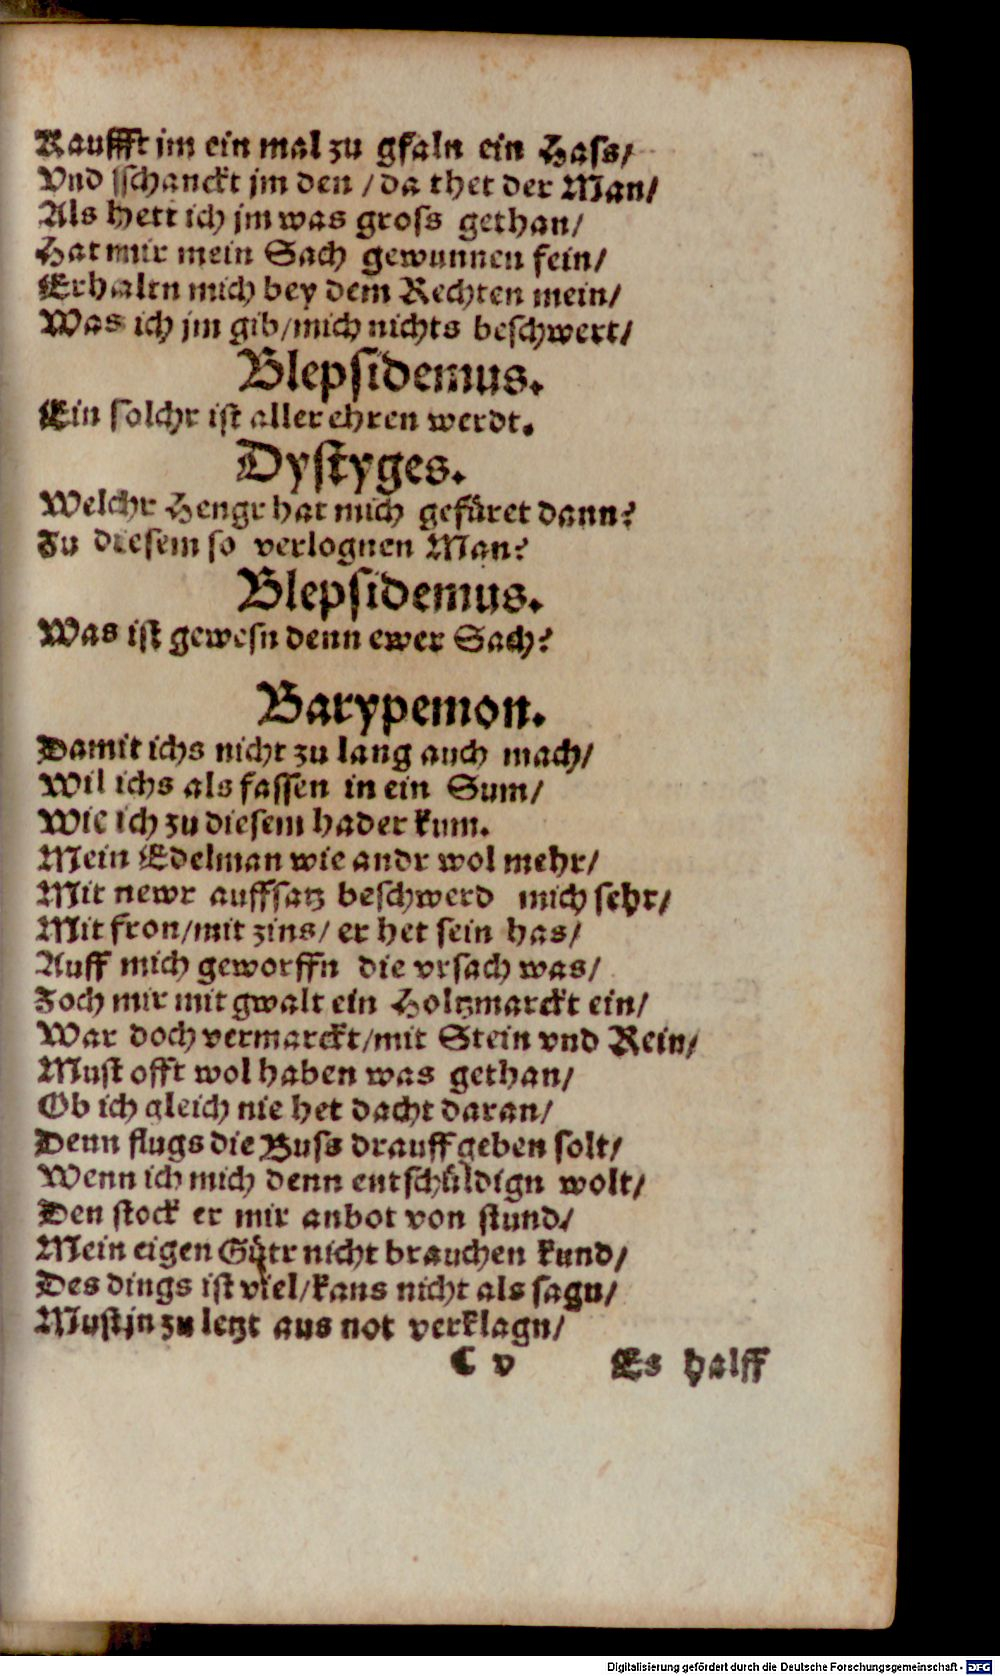 Kauffft jm ein mal zu gfaln ein Hass/
Vnd sschanckt jm den / da thet der Man/
Als hett ich jm was gross gethan/
Hat mir mein Sach gewunnen fein/
Erhaltn mich bey dem Rechten mein/
Was ich jm gib/mich nichts beschwert/
Blepsidemus.
Ein solchr ist aller ehren werdt.
Dystyges.
Welchr Hengr hat mich gefüret dann?
Zu diesem so verlognen Man?
Blepsidemus.
Was ist gewesn denn ewer Sach?
Barypemon.
Damit ichs nicht zu lang auch mach/
Wil ichs als fassen in ein Sum/
Wie ich zu diesem hader kum.
Mein Edelman wie andr wol mehr/
Mit newr auffsatz beschwerd mich sehr/
Mit fron/mit zins/ er het sein has/
Auff mich geworffn die vrsach was/
Zoch mir mit gwalt ein Holtzmarckt ein/
War doch vermarckt/mit Stein vnd Rein/
Must offt wol haben was gethan/
Ob ich gleich nie het dacht daran/
Denn flugs die Buss drauff geben solt/
Wenn ich mich denn entschüldign wolt/
Den stock er mir anbot von stund/
Mein eigen Gütr nicht brauchen kund/
Des dings ist viel/kans nicht als sagn/
Must jn zu letzt aus not verklagn/
C v Es halff
Digitalisierung gefördert durch die Deutsche Forschungsgemeinschaft - DFG